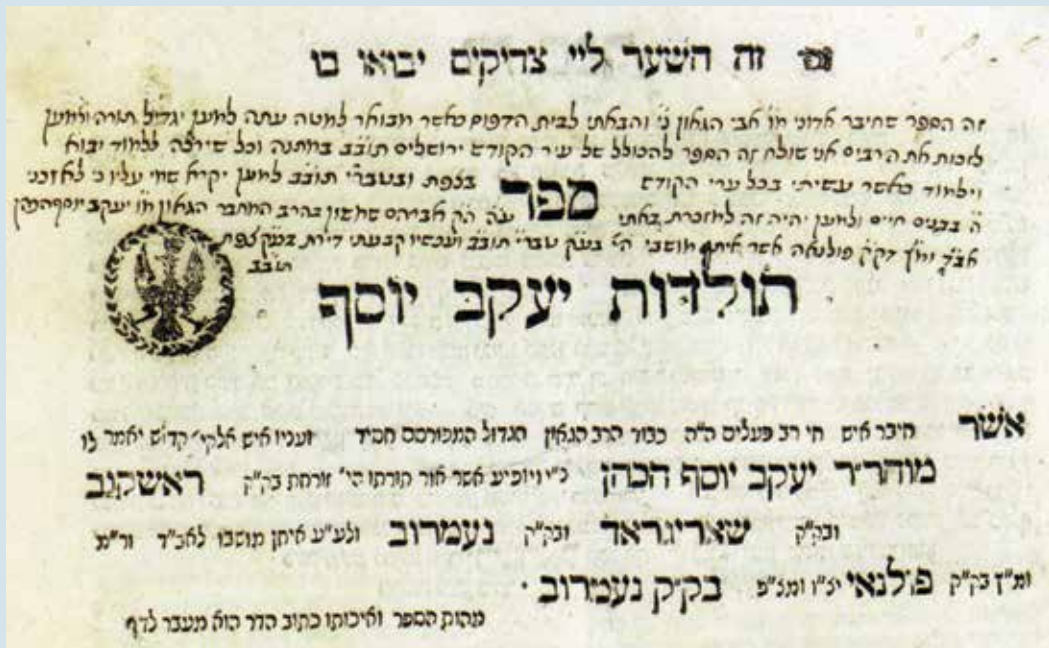 זה השער ליי צדיקים יבואו בו
זה הספר שחיבר אדוני מו' אבי הגאון ני' והבאתי לבית הדפוס כאשר מבואר למטה עתה למען יגדיל תורה ולמען
לזכות את הרבים אני שולח זה הספר להכולל של עיר הקודש ירושלים תובב במתנה וכל שירצה ללמוד יבוא
וילמוד כאשר עשיתי בכל ערי הקודש
ספר
בצפת ובטברי' תובב למען יקרא שמי עליו כי לא זכני
ה' בבנים חיים ולמען יהיה זה למזכרת באתי
הק' אברהם שמשון בהרב המחבר הגאון מו' יעקב יוסף
פולנאה אשר מושבי בעק טברי' תובב ועכשיו קבעתי דירתי בעק צפת
תובב
תולדות יעקב יוסף
אשר חיבר איש חי רב פעלים ה"ה כבוד הרב הגאון הגדול המפורסם חסיד ועניו איש אלקי' קדוש יאמר לו
מוהר"ר יעקב יוסף הכהן אשר אור תורתו הי' זורחת בק"ק ראשקוב
ובק"ק שאריגראד ובק"ק נעמרוב ולע"ע איתן מושבו לאב"ד ור"מ
ומ"ץ בק"ק פולנאי יצ"ו בק"ק נעמרוב
מהות הספר ואיכותו כתוב הדר הוא מעבר לדף